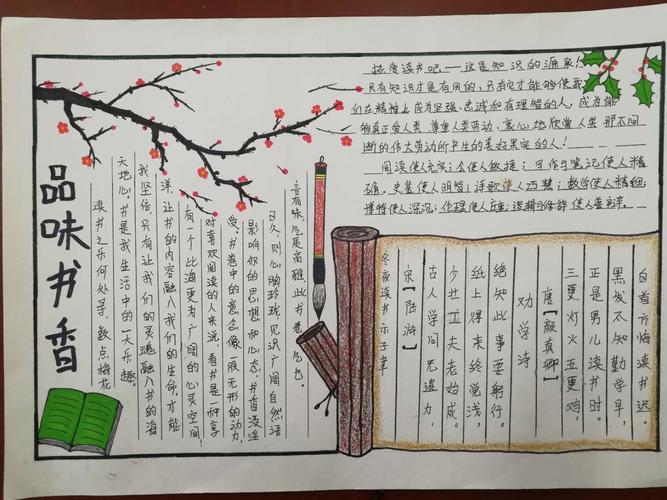 品味书香
热爱读书吧——这是知识的源泉!
只有知识才是有用的,只有它才能够使我
们在精神上成为坚强、忠诚和有理智的人,成为能
够真正爱人类、尊重人类劳动、衷心地欣赏人类那不间
断的伟大劳动所产生的美好果实的人!
阅读使人充实;会使人敏捷;写作与笔记使人精
确。史鉴使人明智;诗歌使人巧慧;数学使人精细;
博物使人深沉;伦理使人庄重;逻辑与修辞使人善辩。
读书之乐何处寻,数点梅花
天地心。书是我生活中的一大乐趣。
我坚信,只有让我们的灵魂融入书的海
洋,让书的内容融入我们的生命,才能
有一个比海更为广阔的心灵空间!
对喜欢阅读的人来说,看书是一种享
受。书卷中的意念像一股无形的动力,
影响你的思想和心态,书香浸淫
日久,则心胸玲珑,见识广阔,自然语
言有味,气质高雅。此书卷气也。
冬夜读书示子聿
宋【陆游】
古人学问无遗力,
少壮工夫老始成。
纸上得来终觉浅,
绝知此事要躬行。
劝学诗
唐【颜真卿】
三更灯火五更鸡,
正是男儿读书时。
黑发不知勤学早,
白首方悔读书迟。